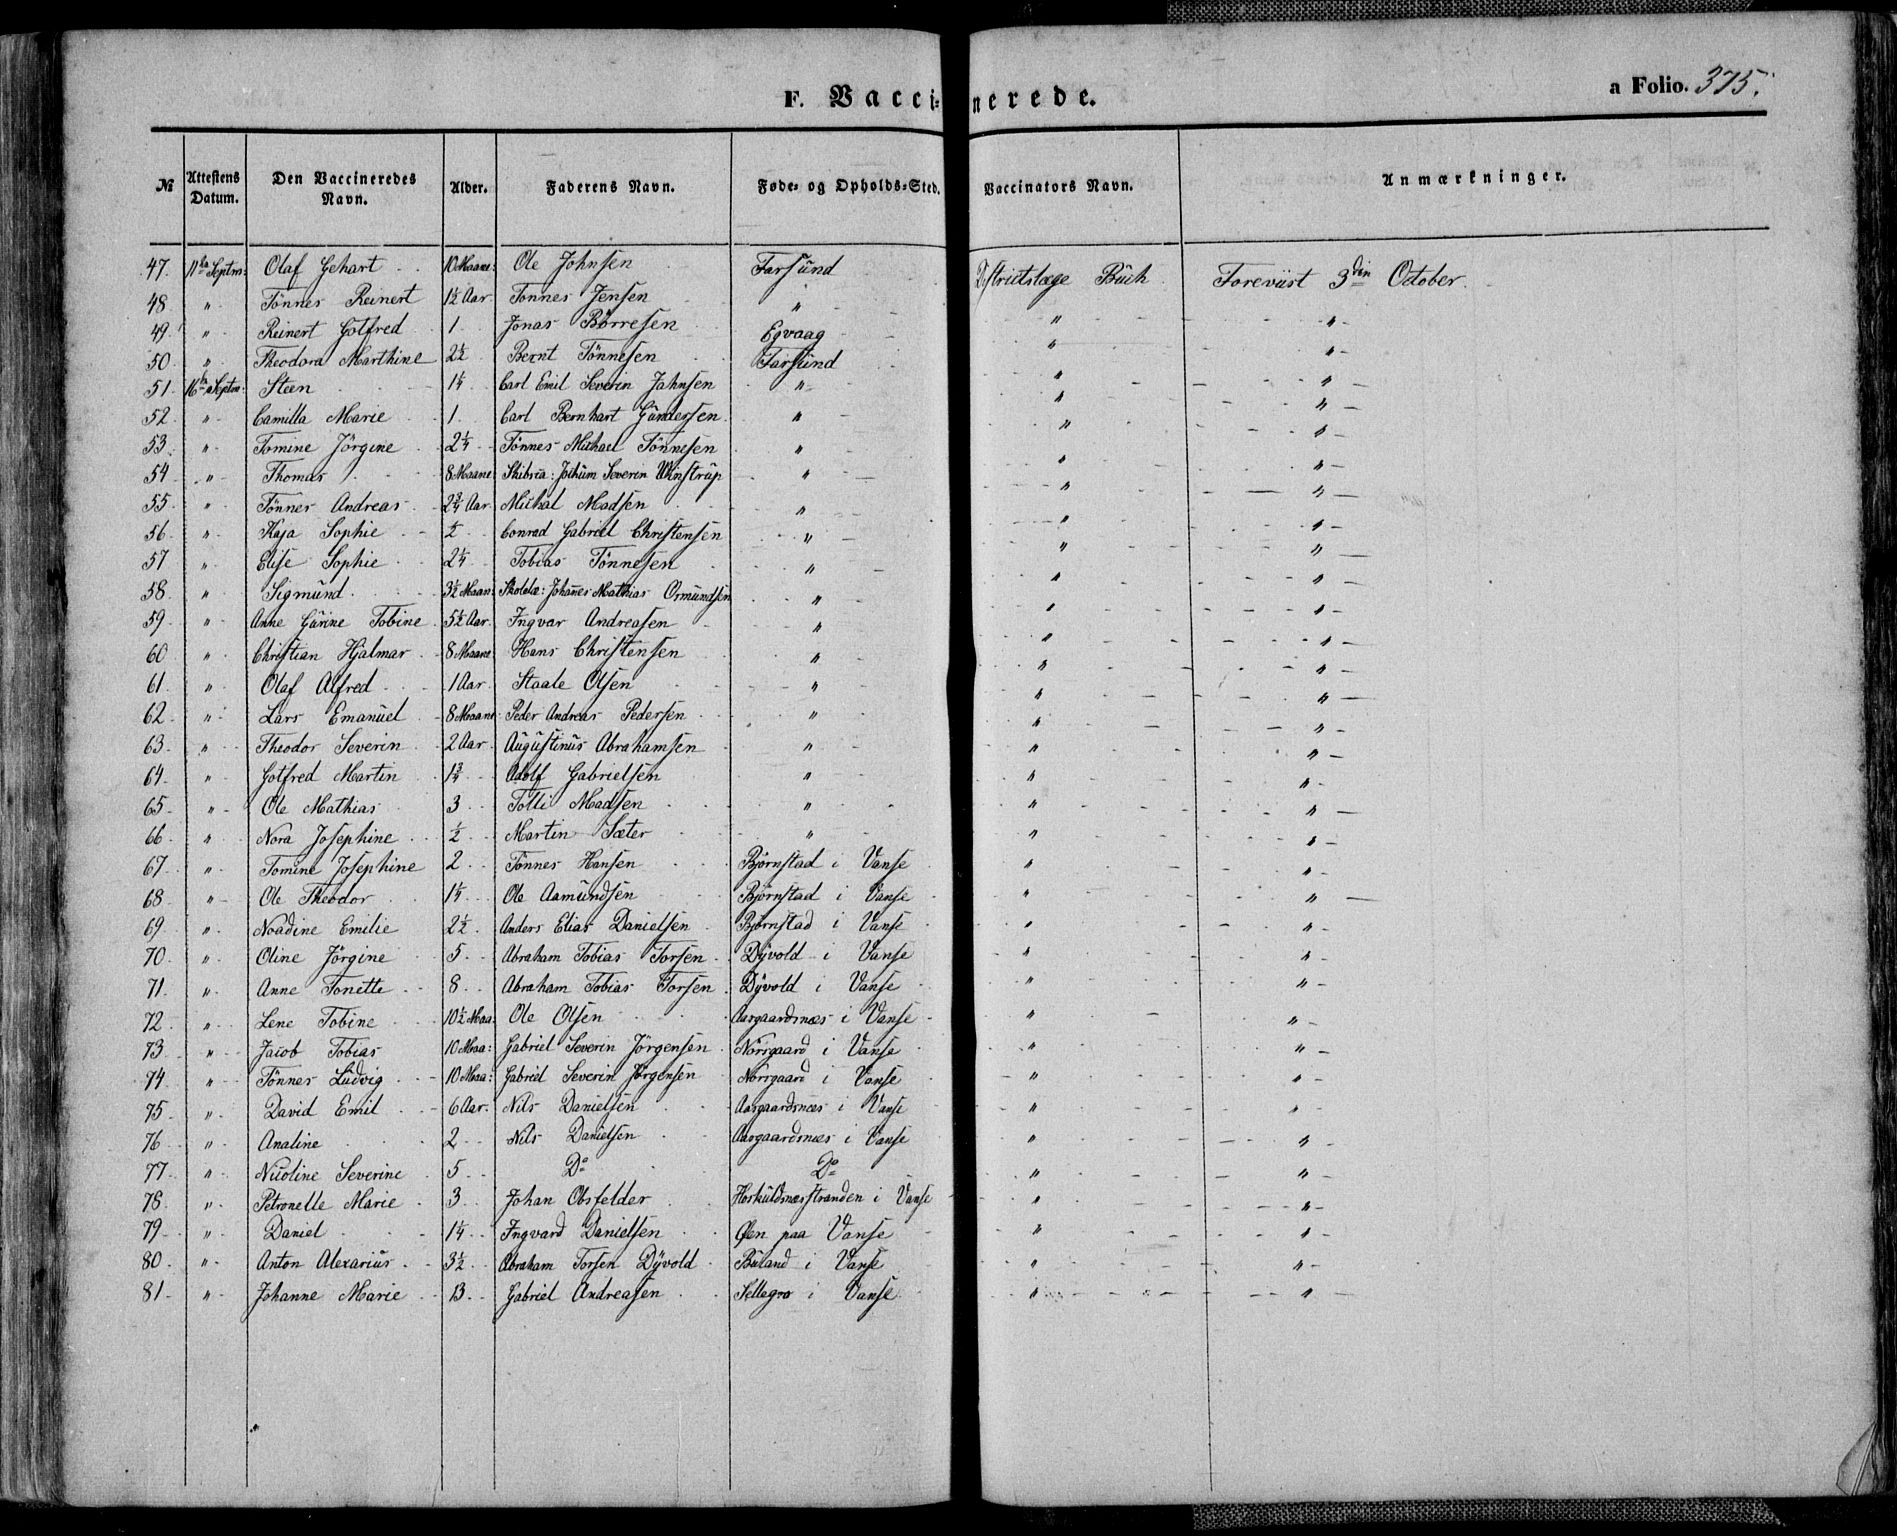 F. Vaccinerede.
a Folio. 375.
№ | Attestens Datum. | Den Vaccineredes Navn. | Alder. | Faderens Navn. | Føde- og Opholds-Sted. | Vaccinators Navn. | Anmærkninger.
47. 11te Septm: Olaf Gehart 10 Maane: Ole Johnsen Farsund Distrietslæge Buch Foreviist 3die October.
48 " Tönnes Reinert 1½ Aar. Tonnes Jensen " " "
49. " Reinert Gotfred 1 Jonas Børresen Egvaag " "
50. " Theodora Marthine 2½ Bernt Tönnesen Farsund " "
51. 16te Septm: Steen 1¼ Carl Emil Severin Jahnsen " " "
52. " Camilla Marie 1. Carl Bernhart Gundersen " " "
53. " Tomine Jörgine 2¼ Tönnes Michael Tönnesen " " "
54 " Thomas 8 Maane Skibria: Jochum Severin Winstrup " " "
55 " Tönnes Andreas 2¾ Aar. Michal Madsen " " "
56. " Kaja Sophie ½ Conrad Gabriel Christensen " " "
57 " Elise Sophie 2¼ Tobias Tönnesen " " "
58. " Sigmund 3½ Maan: Skolelæ: Johannes Mathias Ormundsen " " "
59 " Anne Gurine Tobine 5½ Aar. Ingvar Andreasen " " "
60 " Christian Hjalmar 8 Maane Hans Christensen " " "
61. " Olaf Alfred 1 Aar. Staale Olsen " " "
62 " Lars Emanuel 8 Maane Peder Andreas Pedersen " " "
63. " Theodor Severin 2 Aar. Augustinus Abrahamsen " " "
64. " Gotfred Martin 1¾ Adolf Gabrielsen " " "
65. " Ole Mathias 3 Tolli Madsen " " "
66. " Nora Josephine ½ Martin Sæter " " "
67. " Tomine Josephine 2 Tönnes Hansen Bjørnstad i Vanse " "
68 " Ole Theodor 1¼ Ole Aamundsen Bjørnstad i Vanse " "
69. " Noadine Emilie 2½ Anders Elias Danielsen Bjørnstad i Vanse " "
70. " Oline Jörgine 5 Abraham Tobias Torsen Dyvold i Vanse " "
71. " Anne Tonette 8 Abraham Tobias Torsen Dyvold i Vanse " "
72 " Lene Tobine 10½ Maa: Ole Olsen Aargaardsnæs i Vanse " "
73. " Jacob Tobias 10 Maa: Gabriel Severin Jörgensen Nörrgaard i Vanse " "
74 " Tönnes Ludvig 10 Maa: Gabriel Severin Jörgensen Nörrgaard i Vanse " "
75. " David Emil 6 Aar. Nils Danielsen Aargaardsnæs i Vanse " "
76 " Analine 2 Nils Danielsen Aargaardsnæs i Vanse " "
77 " Nicoline Severine 5 Do Do " "
78. " Petronelle Marie 3 Johan Obsfelder Hoskuldsnæsstranden i Vanse " "
79 " Daniel 1¼ Ingvard Danielsen Øen paa Vanse " "
80. " Anton Alexarius 3½ Abraham Torsen Dyvold Buland i Vanse " "
81. " Johanne Marie 13 Gabriel Andreasen Sellegro i Vanse " "